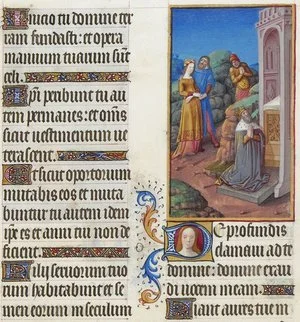 Inicio tu domine ter
ram fundasti: et opera
manuum tuarum sunt
celi.
Ipi peribunt tu au
tem permanes: et oms
sicut vestimentum ve
terascent.
Et sicut opertorium
mutabis eos et muta
buntur tu autem idem
ipse es et anni tui non de
ficient.
Filii servorum tuo
rum habitabunt et se
men eorum in seculum
De profundis
clamavi ad te
domine: domine exau
di vocem meam.
Fiant aures tue in